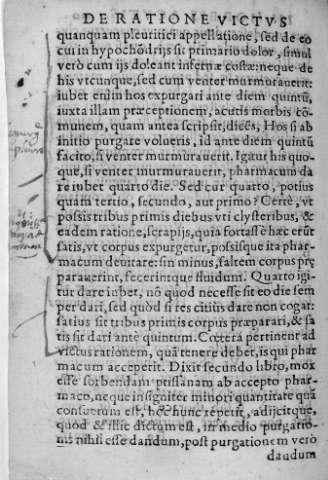 DE RATIONE VICTVS
quanquam pleuritici appellatione, sed de eo
cui in hypochōdrijs sit primario dolor, simul
verò cum ijs doleant infernæ costæ: neque de
his vtcunque, sed cum venter murmurauerit:
iubet enim hos expurgari ante diem quintū,
iuxta illam præceptionem, acutis morbis cō-
munem, quam antea scripsit, dicēs, Hos si ab
initio purgare volueris, id ante diem quintū
facito, si venter murmurauerit. Igitur his quo-
que, si venter murmurauerit, pharmacum da
re iubet quarto die. Sed cur quarto, potius
quam tertio, secundo, aut primo? Certè, vt
possis tribus primis diebus vti clysteribus, &
eadem ratione, serapijs, quia fortasse hæc erūt
satis, vt corpus expurgetur, possisque ita phar-
macum deuitare: sin minus, saltem corpus prę
parauerint, fecerintque fluidum. Quarto igi-
tur dare iubet, nō quod necesse sit eo die sem
per dari, sed quòd si res citiùs dare non cogat:
satius sit tribus primis corpus præparari, & sa
tis sit dari ante quintum. Cætera pertinent ad
victus rationem, quā tenere debet, is qui phar
macum acceperit. Dixit secundo libro, mox
esse sorbendam ptisanam ab accepto phar-
maco, neque insigniter minori quantitate quā
consuetum est, hęc & nunc repetit, adijcitque,
quod & illic dictum est, in medio purgatio-
nis nihil esse dandum, post purgationem verò
dandum